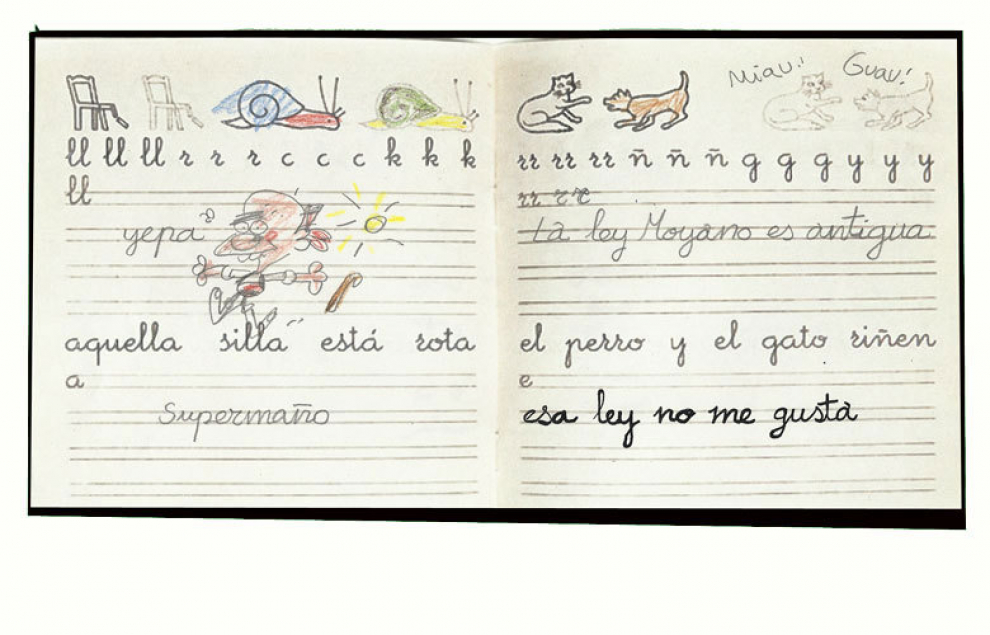 ll ll ll r r r c c c k k k
ll
yepa
aquella silla está rota
a
Supermaño
Miau! Guau!
rr rr rr ñ ñ ñ g g g y y y
rr r r
La ley Moyano es antigua.
el perro y el gato riñen
e
esa ley no me gusta